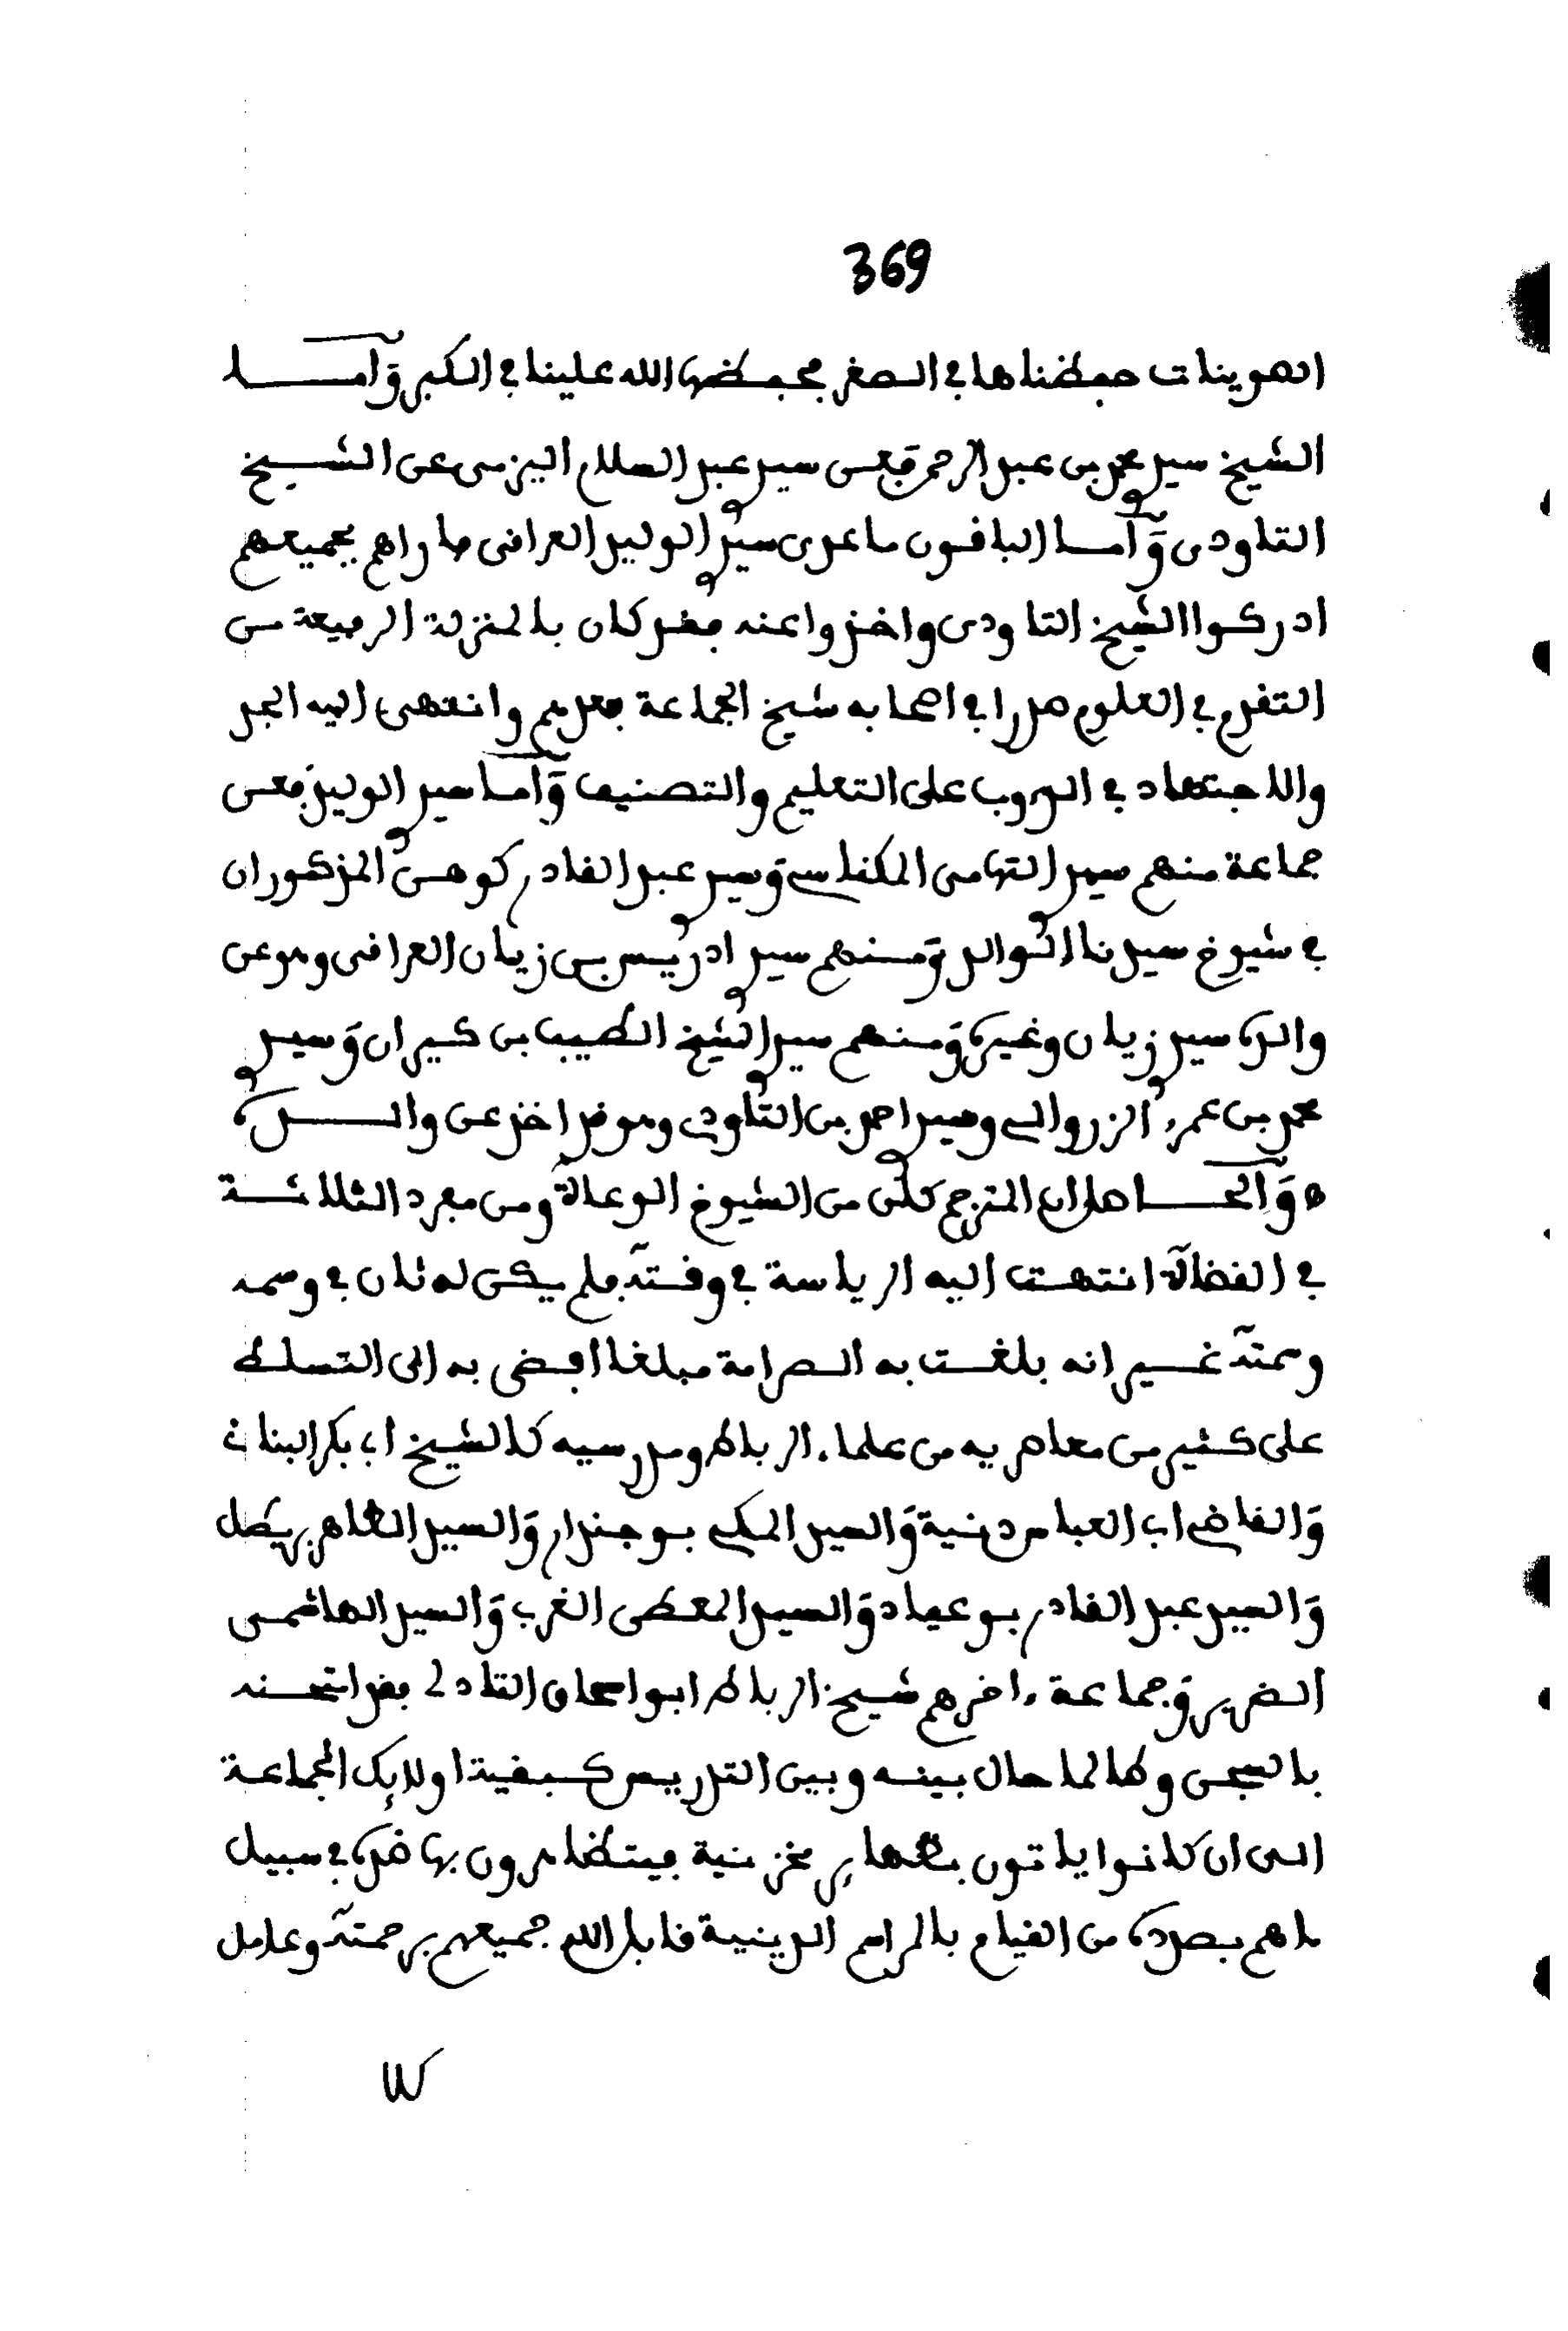 369
الهوينات حفظناها في الصغر فحفظها الله علينا في الكبر وأمـــا
الشيخ سيد محمد بن عبد الرحمن فعن سيد عبد السلام اليزمي عن الشيخ
التاودي وأما الباقون ما عدى سيد الوليد العراقي فما راهم بجميعهم
ادركوا الشيخ التاودي واخذوا عنه فقد كان بالمنزلة الرفيعة من
التقدم في العلوم صدرا في اصحابه شيخ الجماعة بعدهم وانتهى اليه الجد
والاجتهاد في الدروب على التعليم والتصنيف وأما سيد الوليد فعن
جماعة منهم سيد التهامي المكناسي وسيد عبد القادر كوهن المذكوران
في شيوخ سيدنا الوالد ومنهم سيد ادريس بن زيان العراقي وهو عن
والده سيد زيان وغيره ومنهم سيد الشيخ الطيب بن كيران وسيد
محمد بن عمرو الزروالي وسيد احمد بن التاودي وهو قد اخذ عن والـــده
ه والحـــاصل ان المترجم كان من الشيوخ الوعاة ومن مفرد الثلاثـــة
في القضاة انتهت اليه الرياسة في وقته فلم يكن له ثان في وسمه
وسمته غير انه بلغت به الصرامة مبلغا افضى به الى التسلط
على كثير من معاصريه من علماء الرباط ومدرسيه كالشيخ ابي بكر البناني
والقاضي ابي العباس دنية والسيد المكي بوجندار والسيد الطاهر بريطل
والسيد عبد القادر بوعياد والسيد المعطي الغربي والسيد الهاشمي
الضرير وجماعة ءاخرهم شيخ الرباط ابو اسحاق التادلي فقد امتحنه
بالسجن وطالما حال بينه وبين التدريس كبقية اولائك الجماعة
الى ان كانوا ياتون بظهاير مخزنية فيتظاهرون بها ضده في سبيل
ما هم بصدده من القيام بالمراسم الدينية قابل الله جميعهم برحمته وعامل